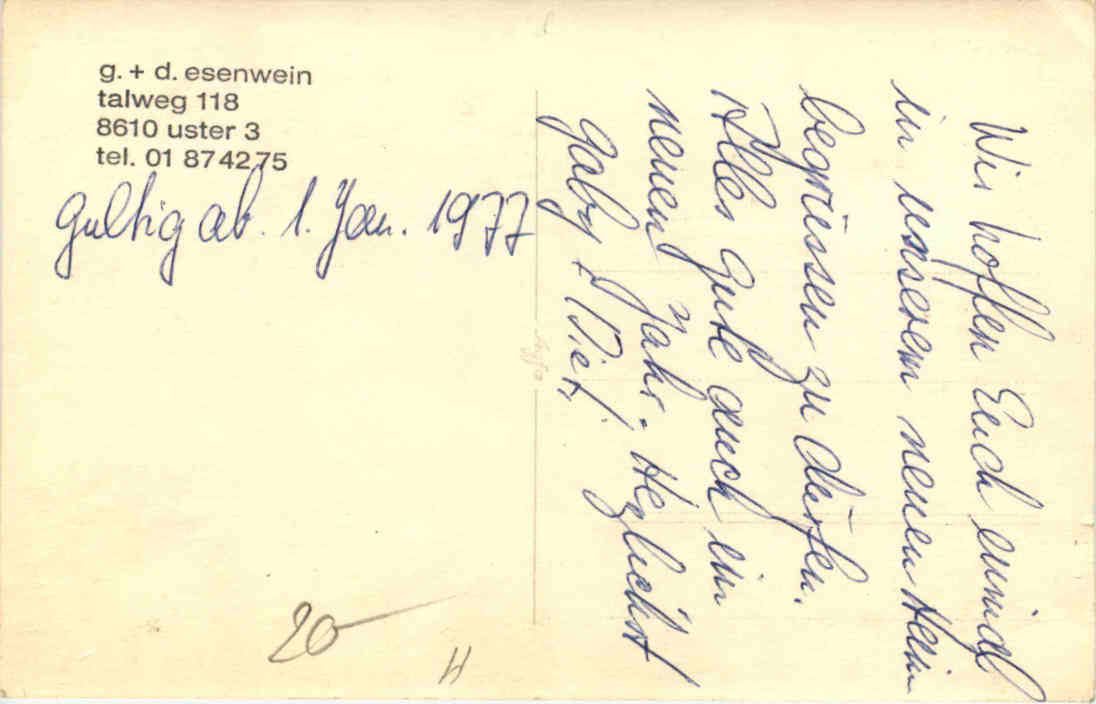 g. + d. esenwein
talweg 118
8610 uster 3
tel. 01 874275
Gültig ab. 1. Jan. 1977
Wir hoffen Euch einmal
in unserem neuen Heim
begrüssen zu dürfen.
Alles Gute auch im
neuen Jahr. Herzlichst
Gaby + Diet.
20-
H